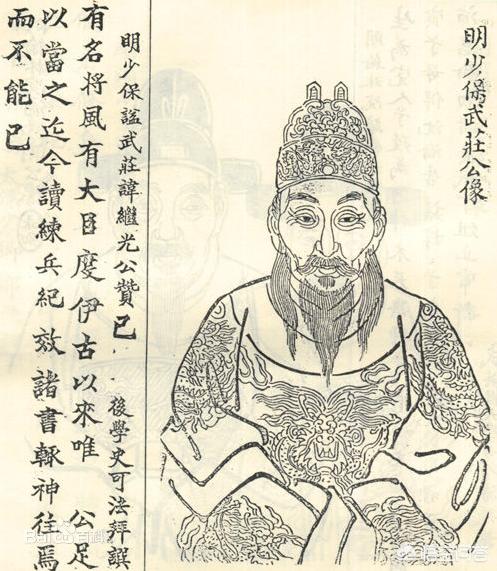 明少保武莊公像
明少保謚武莊諱繼光公贊已
後學史可法拜譔
有名將風有大臣度伊古以來唯 公足
以當之迄今讀練兵紀效諸書輙神往焉
而不能已
Baidu百科